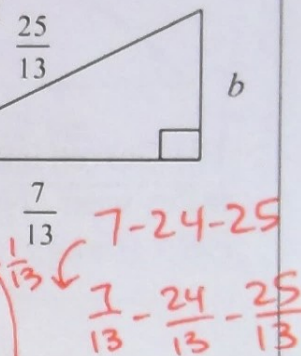 25
13
b
7
13
7-24-25
1
13
7/13 - 24/13 - 25/13